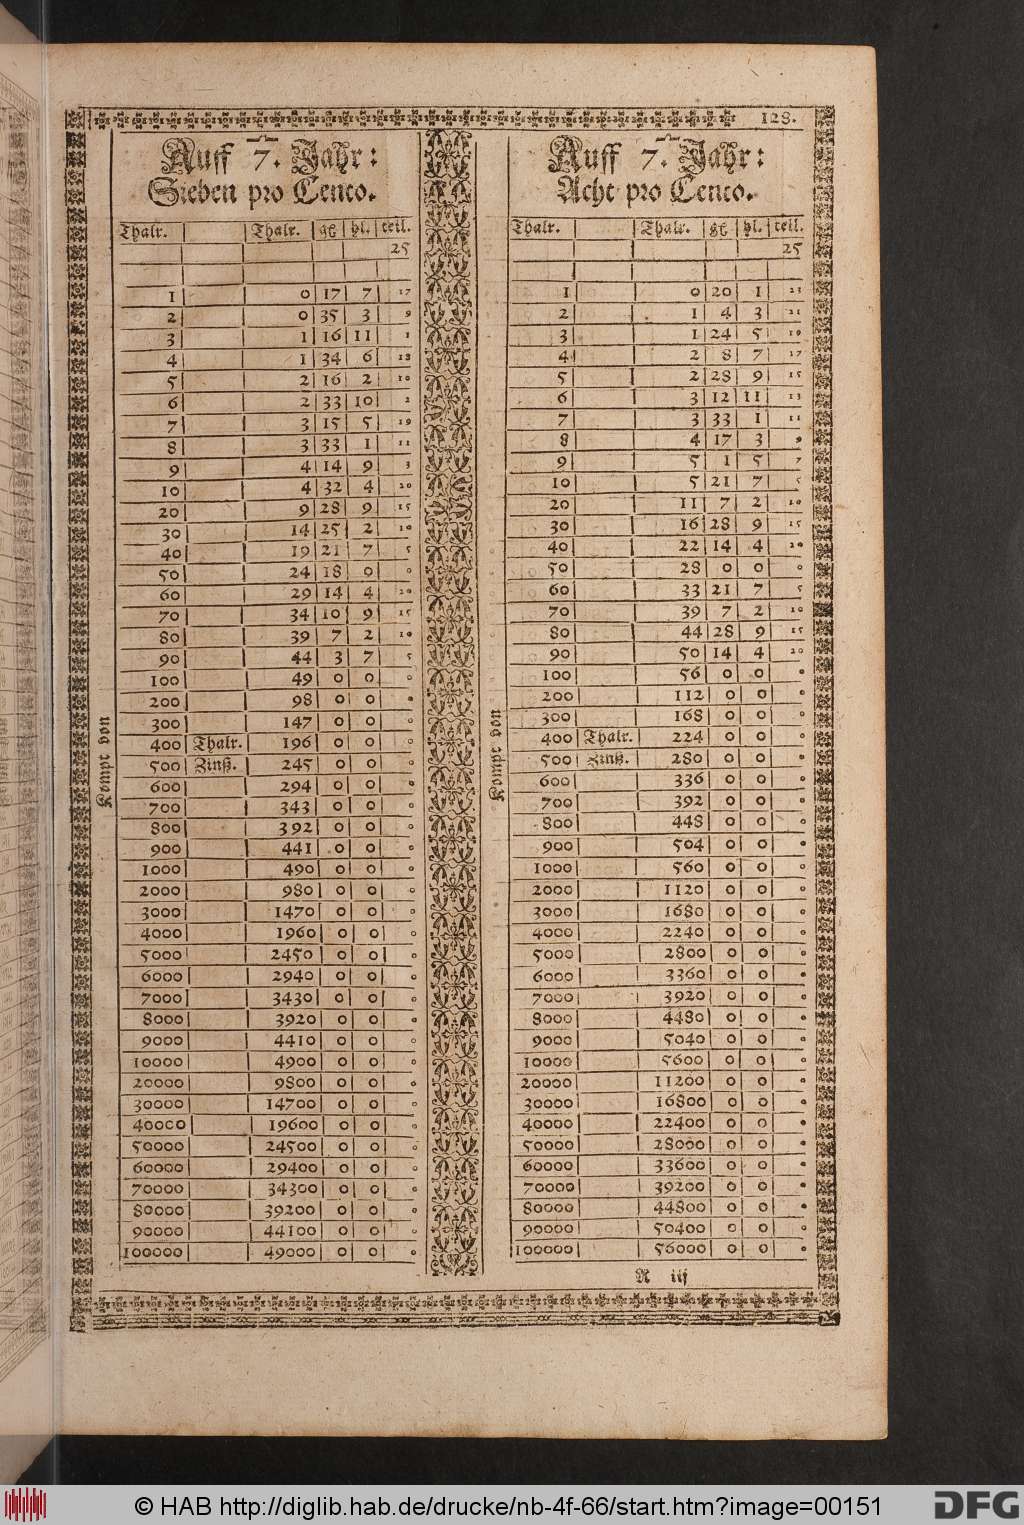 128.
Auff 7. Jahr:
Sieben pro Cento.
Thalr. Thalr. gℓ hl. teil.
25
1 0 17 7 17
2 0 35 3 9
3 1 16 11 1
4 1 34 6 18
5 2 16 2 10
6 2 33 10 2
7 3 15 5 19
8 3 33 1 11
9 4 14 9 3
10 4 32 4 20
20 9 28 9 15
30 14 25 2 10
40 19 21 7 5
50 24 18 0 0
60 29 14 4 20
70 34 10 9 15
80 39 7 2 10
90 44 3 7 5
100 49 0 0 0
200 98 0 0 0
300 147 0 0 0
400 Thalr. 196 0 0 0
500 Zinß. 245 0 0 0
600 294 0 0 0
700 343 0 0 0
800 392 0 0 0
900 441 0 0 0
1000 490 0 0 0
2000 980 0 0 0
3000 1470 0 0 0
4000 1960 0 0 0
5000 2450 0 0 0
6000 2940 0 0 0
7000 3430 0 0 0
8000 3920 0 0 0
9000 4410 0 0 0
10000 4900 0 0 0
20000 9800 0 0 0
30000 14700 0 0 0
40000 19600 0 0 0
50000 24500 0 0 0
60000 29400 0 0 0
70000 34300 0 0 0
80000 39200 0 0 0
90000 44100 0 0 0
100000 49000 0 0 0
Kompt von
Auff 7. Jahr:
Acht pro Cento.
Thalr. Thalr. gℓ hl. teil.
25
1 0 20 1 23
2 1 4 3 21
3 1 24 5 19
4 2 8 7 17
5 2 28 9 15
6 3 12 11 13
7 3 33 1 11
8 4 17 3 9
9 5 1 5 7
10 5 21 7 5
20 11 7 2 10
30 16 28 9 15
40 22 14 4 20
50 28 0 0 0
60 33 21 7 5
70 39 7 2 10
80 44 28 9 15
90 50 14 4 20
100 56 0 0 0
200 112 0 0 0
300 168 0 0 0
400 Thalr. 224 0 0 0
500 Zinß. 280 0 0 0
600 336 0 0 0
700 392 0 0 0
800 448 0 0 0
900 504 0 0 0
1000 560 0 0 0
2000 1120 0 0 0
3000 1680 0 0 0
4000 2240 0 0 0
5000 2800 0 0 0
6000 3360 0 0 0
7000 3920 0 0 0
8000 4480 0 0 0
9000 5040 0 0 0
10000 5600 0 0 0
20000 11200 0 0 0
30000 16800 0 0 0
40000 22400 0 0 0
50000 28000 0 0 0
60000 33600 0 0 0
70000 39200 0 0 0
80000 44800 0 0 0
90000 50400 0 0 0
100000 56000 0 0 0
Kompt von
R iij
© HAB http://diglib.hab.de/drucke/nb-4f-66/start.htm?image=00151
DFG